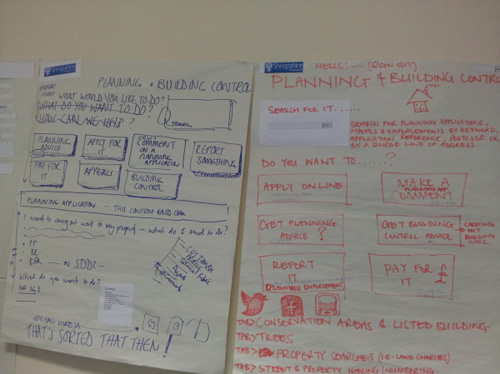 Shropshire
PLANNING + BUILDING CONTROL
WHAT WOULD YOU LIKE TO DO?
WHAT DO YOU WANT TO DO?
HOW CAN WE HELP?
PLANNING ADVICE
APPLY FOR IT
COMMENT ON A PLANNING APPLICATION
REPORT SOMETHING
PAY FOR IT
APPEALS
BUILDING CONTROL
PLANNING APPLICATION - THIS CONTENT
I want to carry out work to my property - what do I need to do?
What do you want to do?
THAT'S SORTED THAT THEN!
Shropshire
HELLO..... (SIGN OUT)
PLANNING & BUILDING CONTRO
SEARCH FOR IT.....
SEARCH FOR PLANNING APPLICATIONS,
APPEALS & ENFORCEMENTS BY KEYWORD,
APPLICATION REFERENCE, POSTCODE OR
BY A SINGLE LINE OF ADDRESS
DO YOU WANT TO......?
APPLY ONLINE
MAKE A
PLANNING APP
COMMENT
GET PLANNING
ADVICE ?
GET BUILDING
CONTROL ADVICE
BUILDING WORK
REPORT
IT
PLANNING ENFORCEMENT
PAY FOR
IT £
TAB> CONSERVATION AREAS & LISTED BUILDING
TAB> TREES
TAB> PROPERTY SEARCHES (I.E. LAND CHARGES)
TAB> STREET & PROPERTY NAMING/NUMBERING